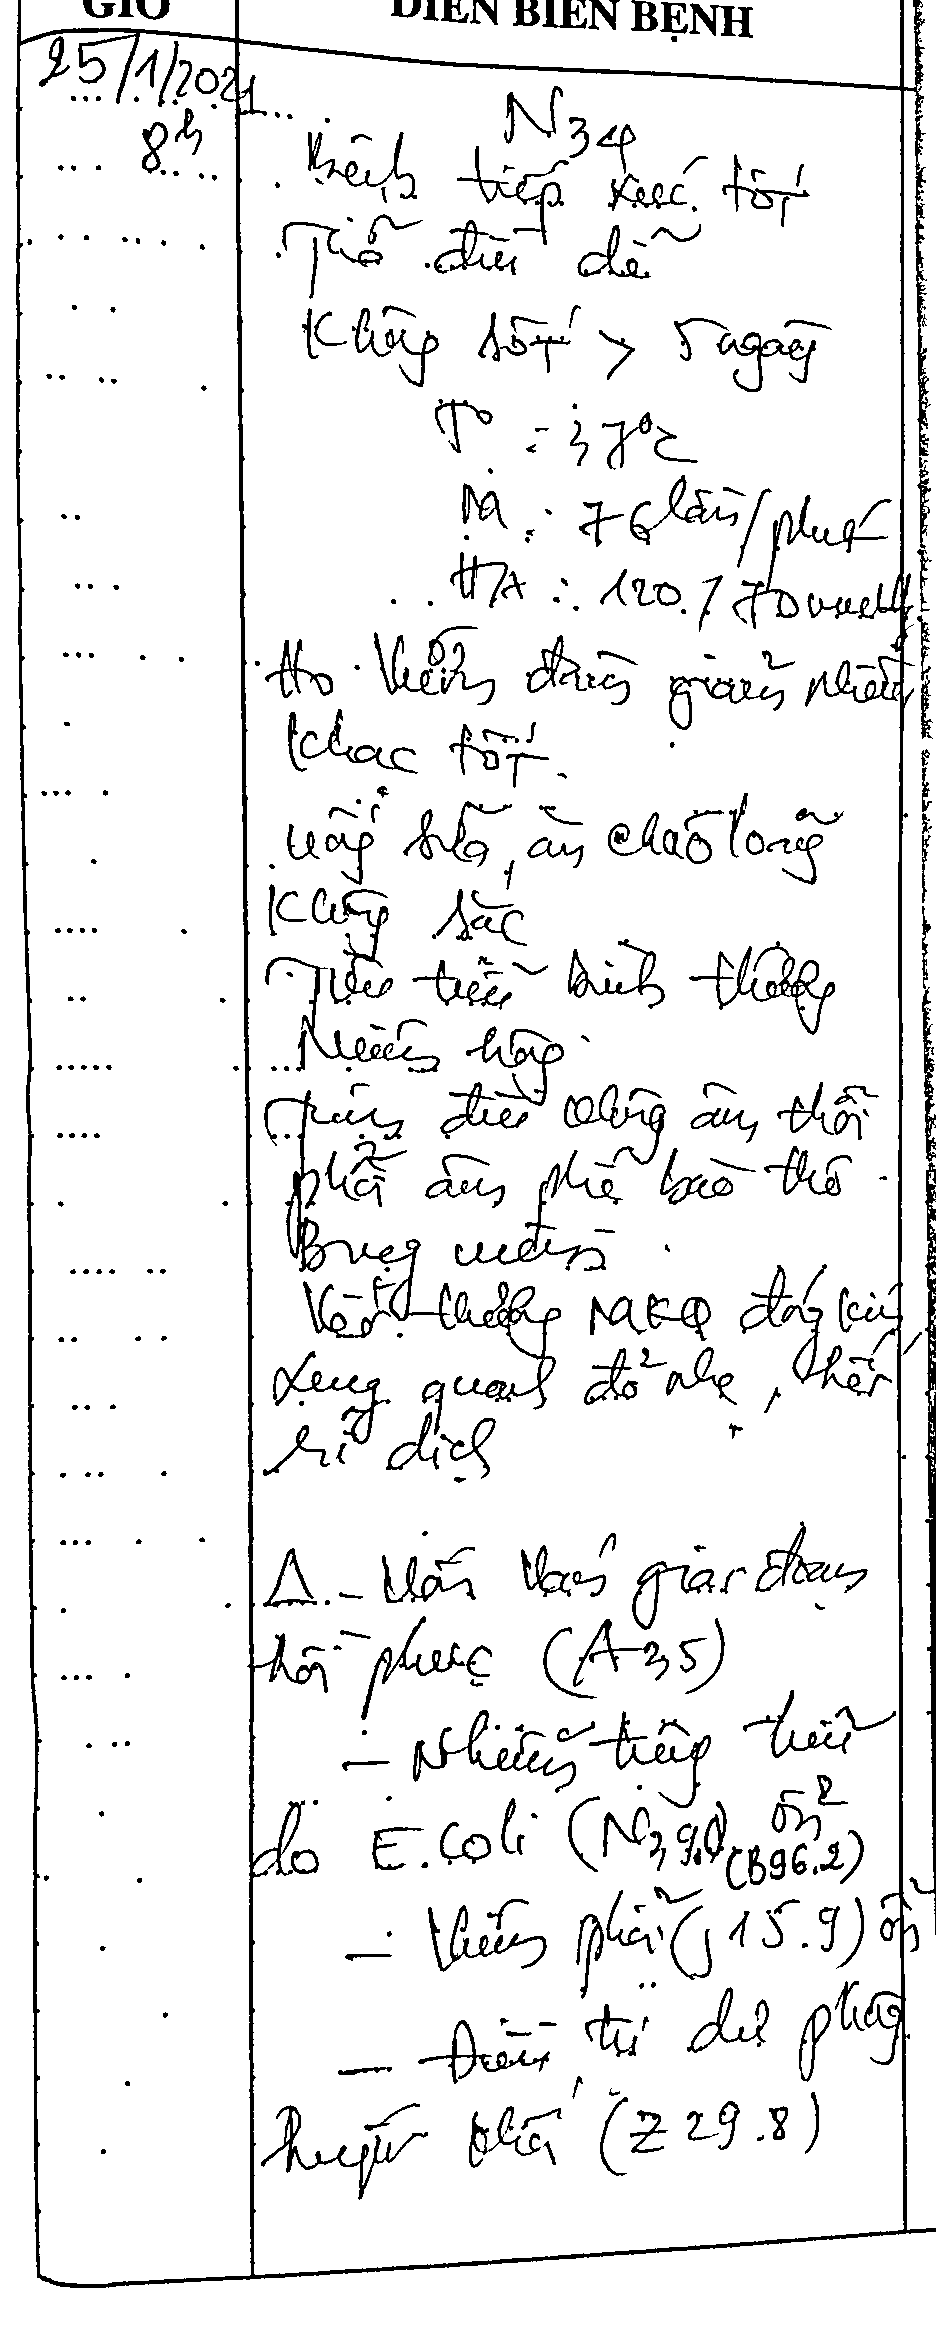 GIỜ
DIỄN BIẾN BỆNH
25/1/2021
8h
N34
Bệnh tiếp xúc tốt
Thở đều dễ
Không sốt > 5 ngày
T° : 37°c
M : 76 lần/phút
HA : 120/70mmHg
Ho khạc đờm giảm nhiều
khạc tốt.
Uống sữa, ăn cháo loãng
Không sặc
Tiểu tiện bình thường
Niêm hồng
Tim đều không âm thổi
phổi âm phế bào thô
Bụng mềm
Vết thương MKQ đóng kín,
xung quanh đỏ nhẹ, hết
rỉ dịch
Δ - Uốn ván giai đoạn
hồi phục (A35)
- Nhiễm trùng tiểu
do E.coli (N39.0) ổn
(B96.2)
- Viêm phổi (J15.9) ổn
- Điều trị dự phòng
huyết khối (Z29.8)